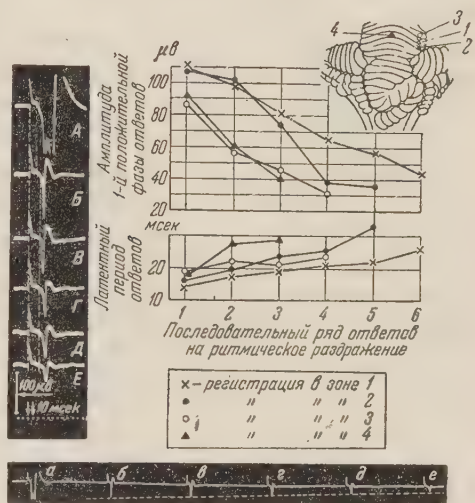 А
Б
В
Г
Д
Е
100 мкв
10 мсек
Амплитуда
1-й положительной
фазы ответов
μв
100
80
60
40
20
Латентный
период
ответов
мсек
20
10
1 2 3 4 5 6
Последовательный ряд ответов
на ритмическое раздражение
4
3
1
2
×– регистрация в зоне 1
● " " " 2
○ " " " 3
▲ " " " 4
а б в г д е